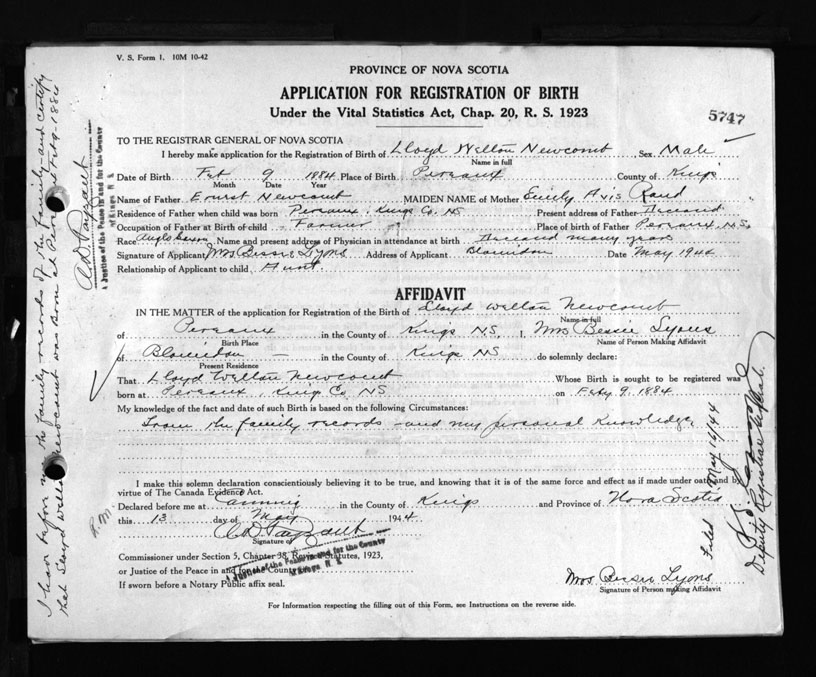 V. S. Form 1. 10M 10-42
PROVINCE OF NOVA SCOTIA
APPLICATION FOR REGISTRATION OF BIRTH
Under the Vital Statistics Act, Chap. 20, R. S. 1923
5747
TO THE REGISTRAR GENERAL OF NOVA SCOTIA
I hereby make application for the Registration of Birth of Lloyd Welton Newcomb Sex Male
Name in full
Date of Birth Feb 9 1884 Place of Birth Pereaux County of Kings
Month Date Year
Name of Father Ernest Newcomb MAIDEN NAME of Mother Emily Avis Rand
Residence of Father when child was born Pereaux, Kings Co, NS Present address of Father Deceased
Occupation of Father at Birth of child Farmer Place of birth of Father Pereaux, N.S.
Race Anglo Saxon Name and present address of Physician in attendance at birth Deceased many years
Signature of Applicant Mrs Bessie Lyons Address of Applicant Blomidon Date May 1944
Relationship of Applicant to child Aunt.
AFFIDAVIT
IN THE MATTER of the application for Registration of the Birth of Lloyd Welton Newcomb
Name in full
of Pereaux in the County of Kings N.S, I, Mrs Bessie Lyons
Birth Place Name of Person Making Affidavit
of Blomidon in the County of Kings NS do solemnly declare:
Present Residence
That Lloyd Welton Newcomb Whose Birth is sought to be registered was
born at Pereaux, Kings Co, NS on Feby 9. 1884
My knowledge of the fact and date of such Birth is based on the following Circumstances:
From the family records and my personal Knowledge,
I make this solemn declaration conscientiously believing it to be true, and knowing that it is of the same force and effect as if made under oath and by
virtue of The Canada Evidence Act.
Declared before me at Canning in the County of Kings and Province of Nova Scotia
this 13 day of May 1944.
Signature of
Commissioner under Section 5, Chapter 38, Revised Statutes, 1923,
or Justice of the Peace in and for the County
A Justice of the Peace in and for the County
of Kings N. S.
If sworn before a Notary Public affix seal.
Mrs Bessie Lyons
Signature of Person making Affidavit
For Information respecting the filling out of this Form, see Instructions on the reverse side.
I have before me the family records of the family and certify
that Lloyd Welton Newcomb was Born at Feb 9. 1884
A Justice of the Peace in and for the County
of Kings N S
Filed May 16/44
Deputy Registrar General.